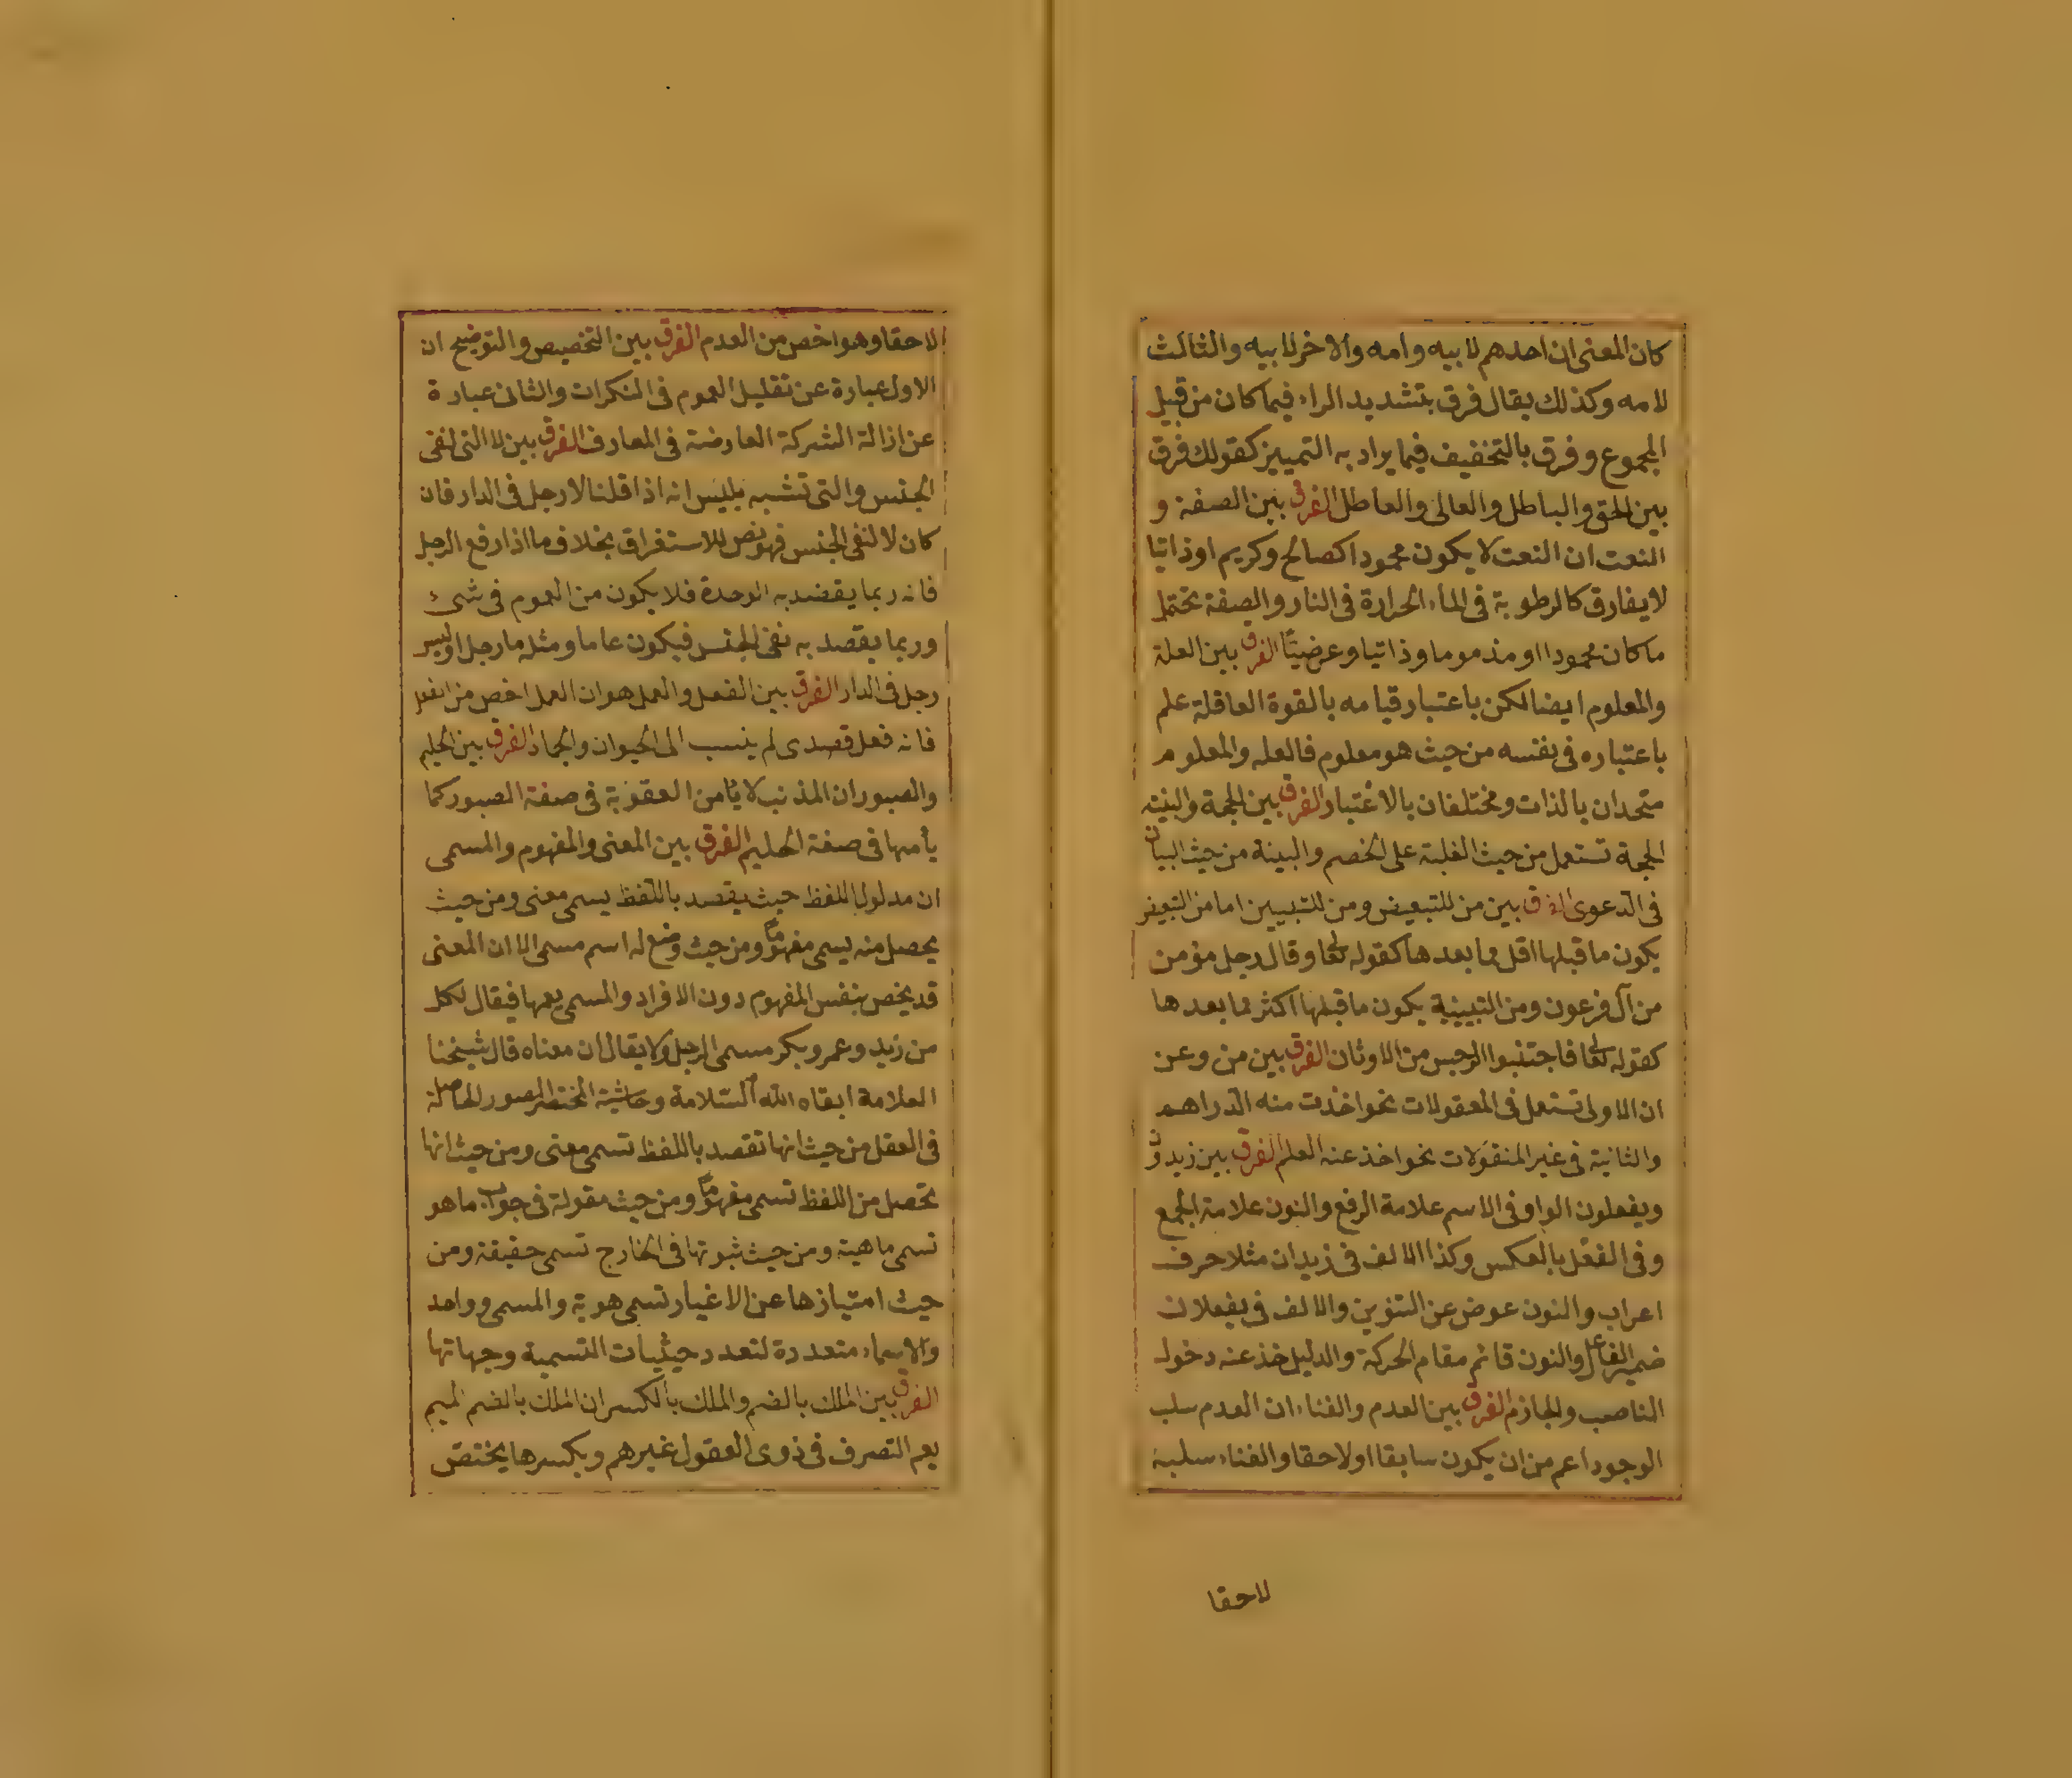 كان المعنى ان احدهم لابيه وامه والاخر لابيه والثالث
لامه وكذلك يقال فرق بتشديد الراء فيما كان من قبيل
المجموع وفرق بالتخفيف فيما يراد به التمييز كقولك فرق
بين الحق والباطل والعالى والعاطل الفرق بين الصفة و
النعت ان النعت لا يكون محمودا كصالح وكريم اوذاتيا
لا يفارق كالرطوبة فى الماء الحرارة فى النار والصفة تحتمل
ما كان محمودا او مذموما وذاتيا وعرضيّا الفرق بين العلة
والمعلوم ايضا لكن باعتبار قيامه بالقوة العاقلة علم
باعتباره فى نفسه من حيث هو معلوم فالعله والمعلوم
متحدان بالذات ومختلفان بالاعتبار الفرق بين الحجة والبينه
الحجة تستعمل من حيث الغلبة على الخصم والبينة من حيث البيان
فى الدعوى الفرق بين من للتبعيض ومن للتبيين اما من التبعيض
يكون ما قبلها اقل مما بعدها كقوله تعا وقال رجل مؤمن
من آل فرعون ومن التبيينية يكون ما قبلها اكثر مما بعدها
كقوله تعا فاجتنبوا الرجس من الاوثان الفرق بين من وعن
ان الاولى تستعمل فى المعقولات نحو اخذت منه الدراهم
والثانية فى غير المنقولات نحو اخذ عنه العلم الفرق بين زيدون
ويفعلون الواو فى الاسم علامة الرفع والنون علامة الجمع
وفى الفعل بالعكس وكذا الالف فى زيدان مثلا حرف
اعراب والنون عوض عن التنوين والالف فى يفعلان
ضمير الفاعل والنون قائم مقام الحركة والدليل حذ عنه دخول
الناصب والجازم الفرق بين العدم والفناء ان العدم سلب
الوجود اعم من ان يكون سابقا او لاحقا والفناء سلبه
لاحقا
لاحقا وهو اخص من العدم الفرق بين التخصيص والتوضيح ان
الاول عبارة عن تقليل العموم فى المنكرات والثانى عبارة
عن ازالة الشركة العارضة فى المعارف الفرق بين لا التى لنفى
الجنس والتى تشبه بليس انه اذا قلنا لا رجل فى الدار فان
كان لا لنفى الجنس فهو نص للاستغراق بخلاف ما اذا رفع الرجل
فانه ربما يقصد به الوحدة فلا يكون من العموم فى شئ
وربما يقصد به نفى الجنس فيكون عاما ومثله ما رجل او ليس
رجل فى الدار الفرق بين الفعل والعمل هو ان العمل اخص من الفعل
فانه فعل قصدى لم ينسب الى الحيوان والجماد الفرق بين الحليم
والصبور ان المذنب لا يأمن العقوبة فى صفة الصبور كما
يأمنها فى صفة الحليم الفرق بين المعنى والمفهوم والمسمى
ان مدلول اللفظ حيث يقصد باللفظ يسمى معنى ومن حيث
يحصل منه يسمى مفهوما ومن حيث وضع له اسم مسمى الا ان المعنى
قد يخص بنفس المفهوم دون الافراد والمسمى يعمها فيقال لكل
من زيد وعمرو بكر مسمى الرجل ولا يقال ان معناه قال شيخنا
العلامة ابقاه الله السّلامة وحاشية المختصر الصور الحاصلة
فى العقل من حيث انها تقصد باللفظ تسمى معنى ومن حيث انها
تحصل من اللفظ تسمى مفهوما ومن حيث مقولة فى جواب ما هو
تسمى ماهية ومن حيث ثبوتها فى الخارج تسمى حقيقة ومن
حيث امتيازها عن الاغيار تسمى هوية والمسمى وواحد
والاسماء متعددة لتعدد حيثيات التسمية وجهاتها
الفرق بين الملك بالضم والملك بالكسر ان الملك بالضم الميم
يعم التصرف فى ذوى العقول غيرهم وبكسرها يختص